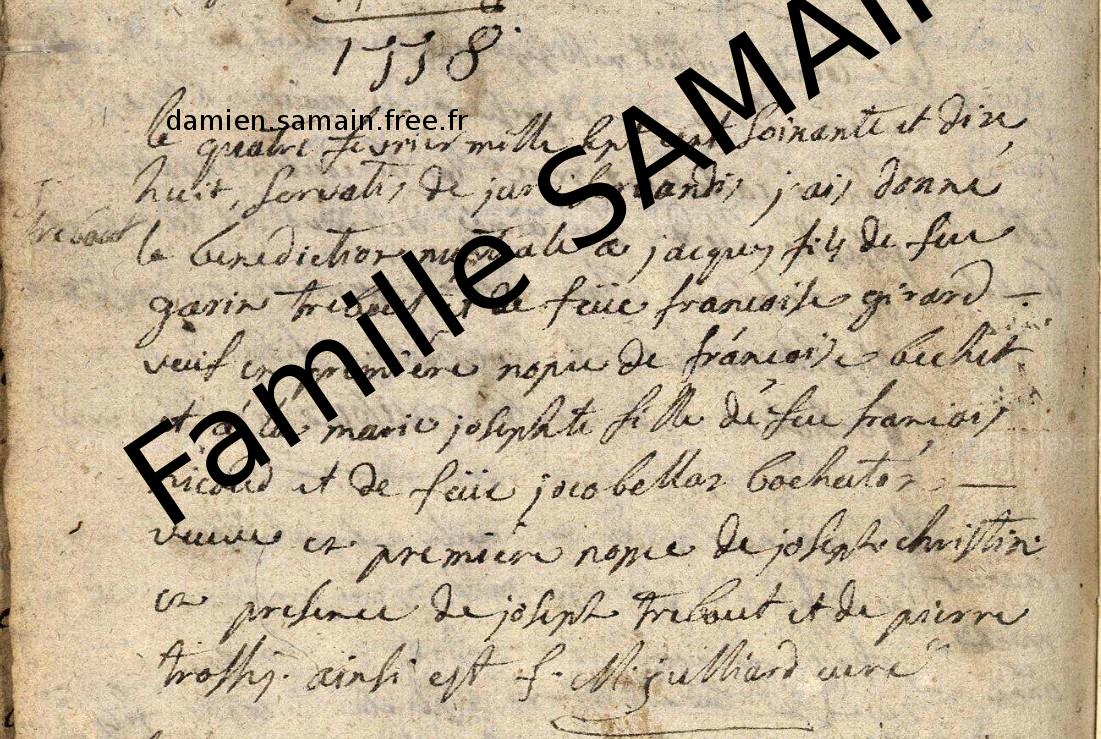 1778
damien.samain.free.fr
Famille SAMAIN
le quatre fevrier mille sept cent soixante et dix
huit, servatis de jure servandis j'ais donné
la benediction nuptiale a jacques fils de feu
garin trebout et de feüe francoise girard
veuf en premiere nopce de francoise bechet
trebout
et à la marie josephte fille de feu francois
nicoud et de feüe jacobellaz bochatoz
veuve en premiere nopce de joseph christin
en presence de joseph trebout et de pierre
ainsi est f. M. juilliard curé